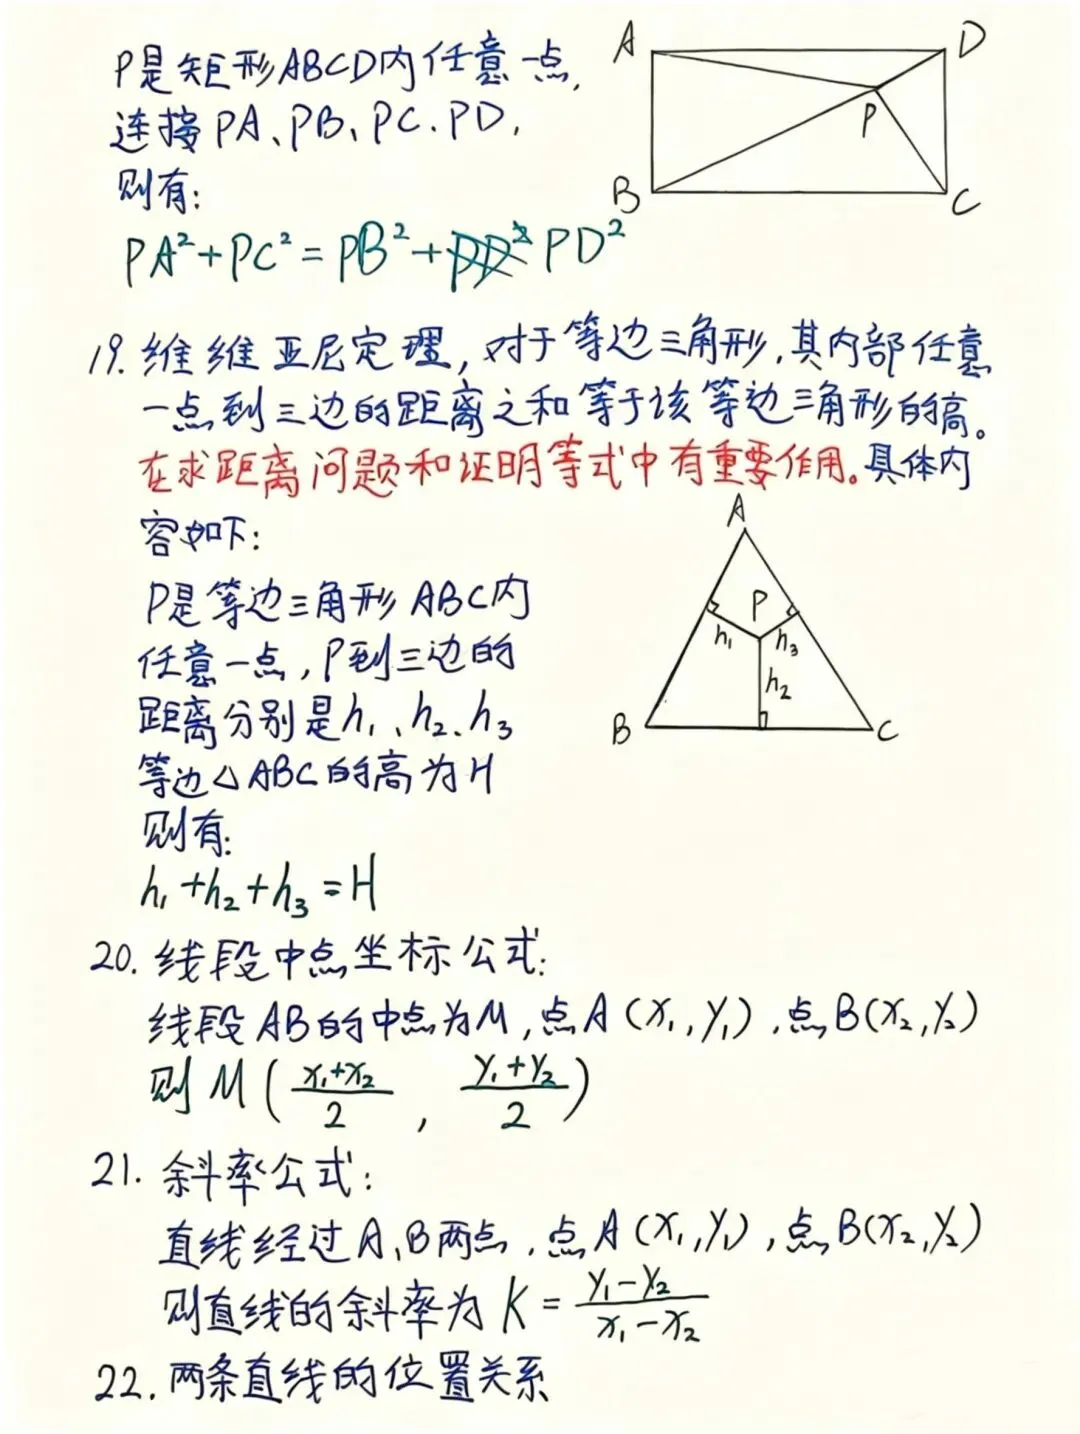 P是矩形ABCD内任意一点,
连接PA、PB、PC、PD,
则有:
PA²+PC²=PB²+PD²
A
D
P
B
C
19. 维维亚尼定理,对于等边三角形,其内部任意
一点到三边的距离之和等于该等边三角形的高。
在求距离问题和证明等式中有重要作用。具体内
容如下:
P是等边三角形ABC内
任意一点,P到三边的
距离分别是h₁、h₂、h₃
等边△ABC的高为H
则有:
h₁+h₂+h₃=H
A
P
h₁
h₃
h₂
B
C
20. 线段中点坐标公式:
线段AB的中点为M,点A(x₁,y₁),点B(x₂,y₂)
则M(x₁+x₂/2, y₁+y₂/2)
21. 斜率公式:
直线经过A、B两点,点A(x₁,y₁),点B(x₂,y₂)
则直线的斜率为K=y₁-y₂/x₁-x₂
22. 两条直线的位置关系